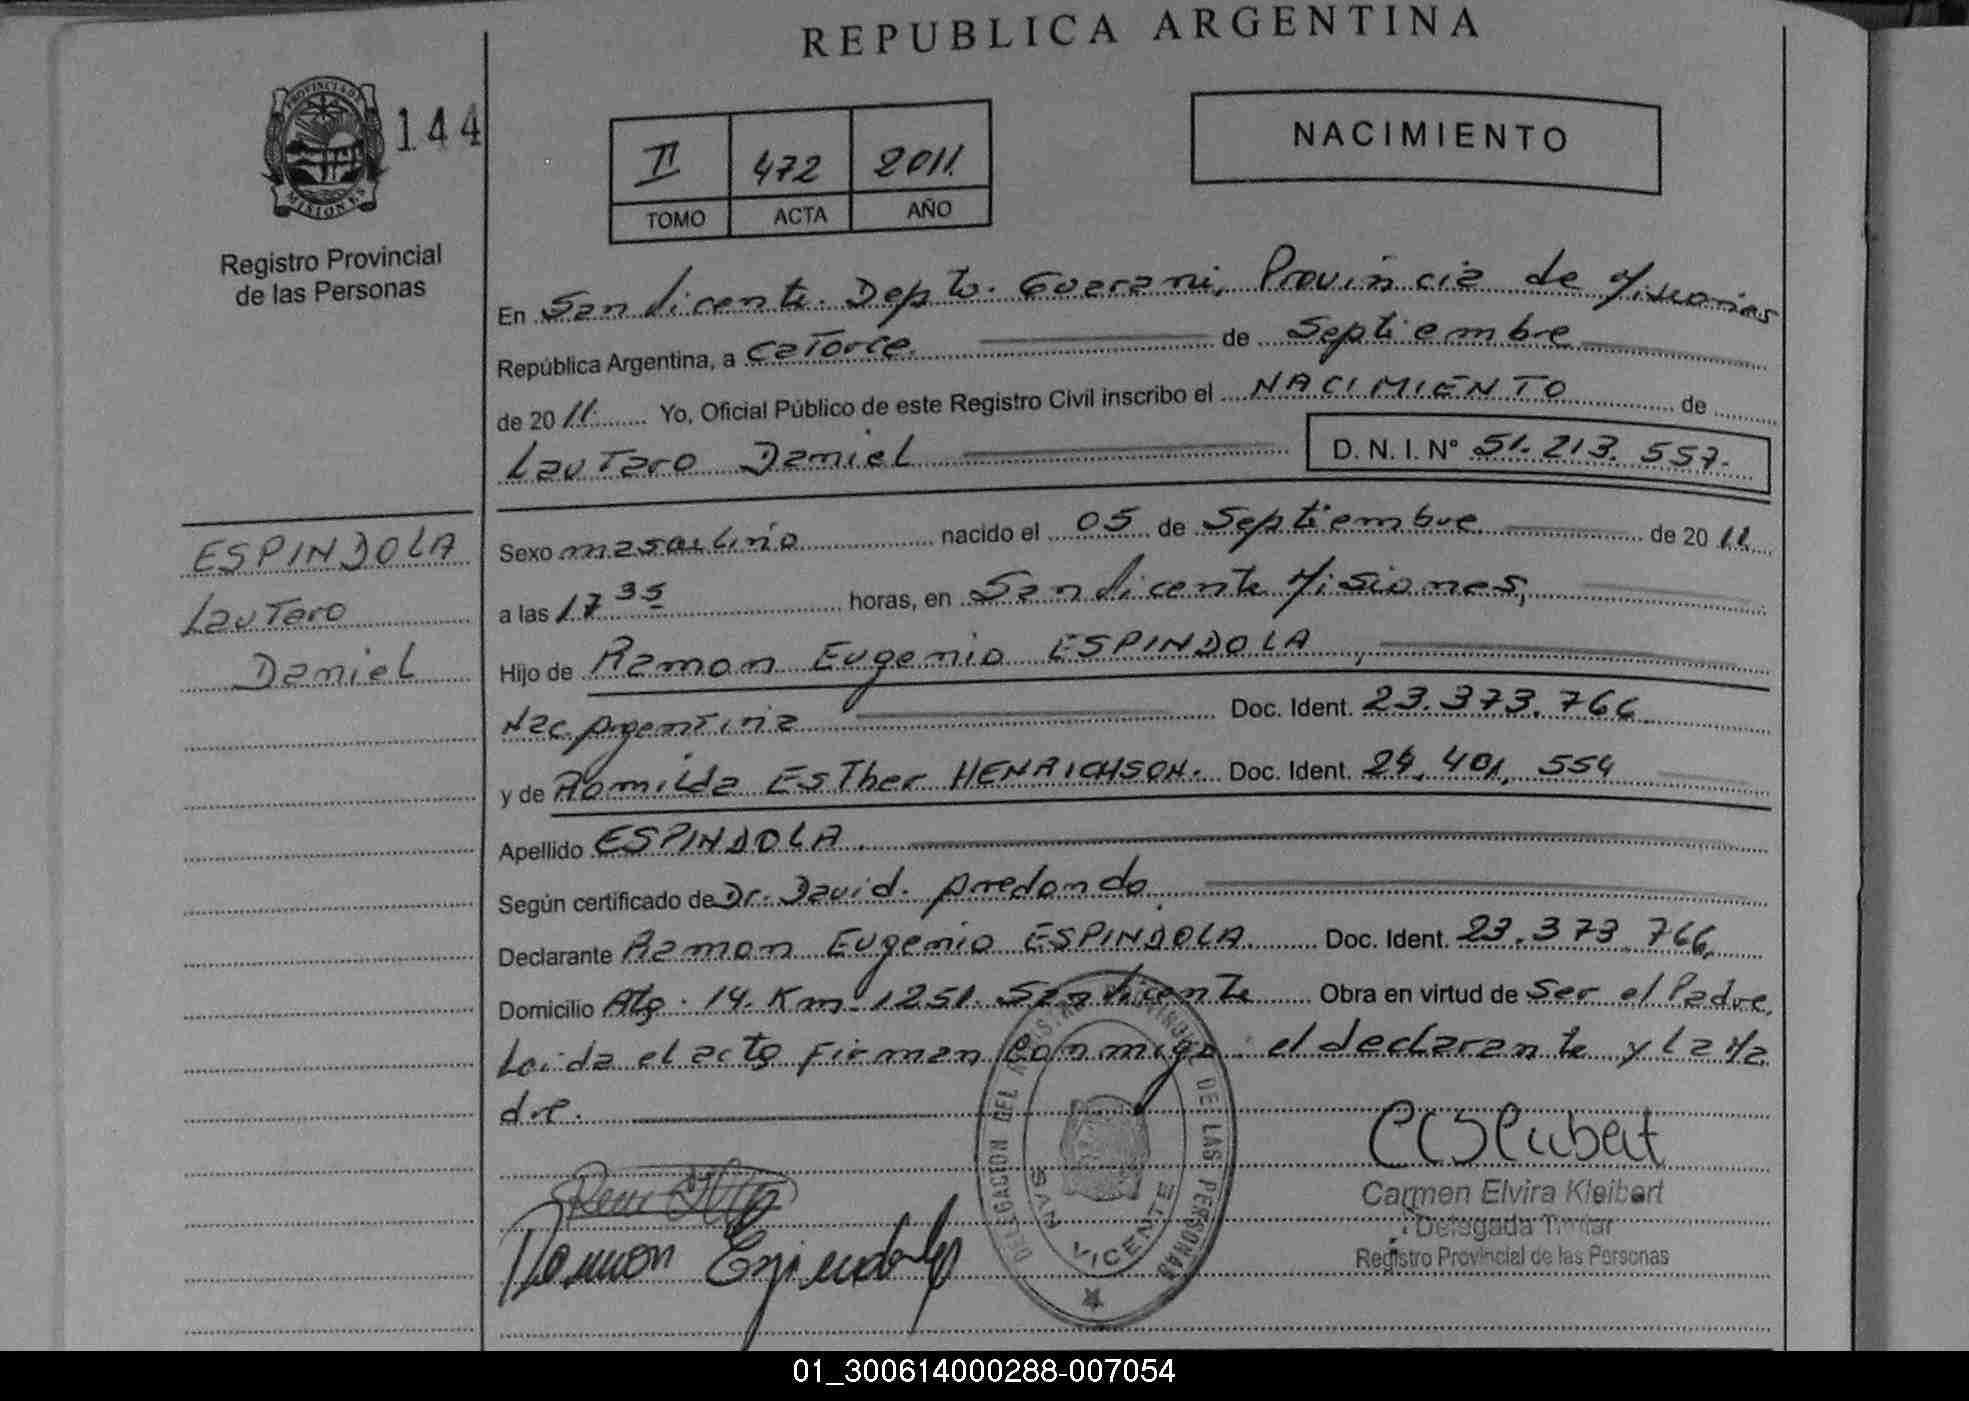 REPUBLICA ARGENTINA
PROVINCIA DE
MISIONES
144
II 472 2011.
TOMO ACTA AÑO
NACIMIENTO
Registro Provincial
de las Personas
En San Vicente. Depto. Guarani, Provincia de Misiones
República Argentina, a catorce. de Septiembre
de 2011. Yo, Oficial Público de este Registro Civil inscribo el NACIMIENTO de
Lautaro Daniel D. N. I. N° 51.213.557.
ESPINDOLA
Lautaro
Daniel
Sexo masculino nacido el 05 de Septiembre de 2011
a las 17 35 horas, en San Vicente Misiones,
Hijo de Ramon Eugenio ESPINDOLA,
Nac. Argentina Doc. Ident. 23.373.766
y de Romilda Esther HENRICHSON. Doc. Ident. 24.401.554
Apellido ESPINDOLA.
Según certificado de Dr. David. Arredondo.
Declarante Ramon Eugenio ESPINDOLA Doc. Ident. 23.373.766.
Domicilio Alg. 14. Km. 1251. San Vicente Obra en virtud de Ser el Padre.
Leida el acta firman conmigo: el declarante y la Ma
dre.
DELEGACION DEL REGISTRO PROVINCIAL DE LAS PERSONAS
SAN VICENTE
Ramon Espindola
Carmen Elvira Kleibert
Delegada Titular
Registro Provincial de las Personas
01_300614000288-007054